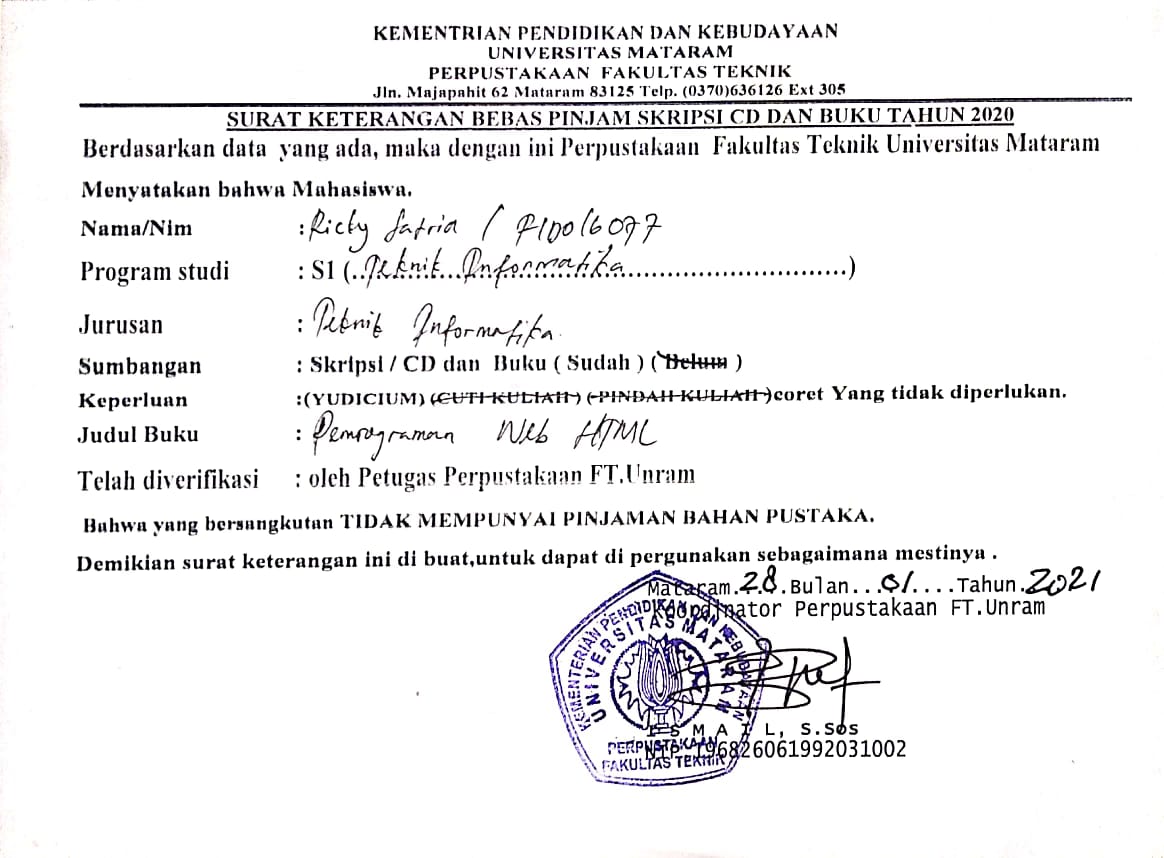 KEMENTRIAN PENDIDIKAN DAN KEBUDAYAAN
UNIVERSITAS MATARAM
PERPUSTAKAAN FAKULTAS TEKNIK
Jln. Majapahit 62 Mataram 83125 Telp. (0370)636126 Ext 305
SURAT KETERANGAN BEBAS PINJAM SKRIPSI CD DAN BUKU TAHUN 2020
Berdasarkan data yang ada, maka dengan ini Perpustakaan Fakultas Teknik Universitas Mataram
Menyatakan bahwa Mahasiswa.
Nama/Nim : Ricky Satria / F1D016077
Program studi : S1 (..Teknik...Informatika..............................)
Jurusan : Teknik Informatika.
Sumbangan : Skripsi / CD dan Buku ( Sudah ) ( Belum )
Keperluan :(YUDICIUM) (CUTI KULIAH ) ( PINDAH KULIAH )coret Yang tidak diperlukan.
Judul Buku : Pemrograman Web HTML
Telah diverifikasi : oleh Petugas Perpustakaan FT.Unram
Bahwa yang bersangkutan TIDAK MEMPUNYAI PINJAMAN BAHAN PUSTAKA.
Demikian surat keterangan ini di buat,untuk dapat di pergunakan sebagaimana mestinya .
Mataram.28.Bulan...01....Tahun.2021
Koordinator Perpustakaan FT.Unram
KEMENTERIAN PENDIDIKAN DAN KEBUDAYAAN
UNIVERSITAS MATARAM
PERPUSTAKAAN
FAKULTAS TEKNIK
I S M A I L, S.Sos
NIP 196826061992031002